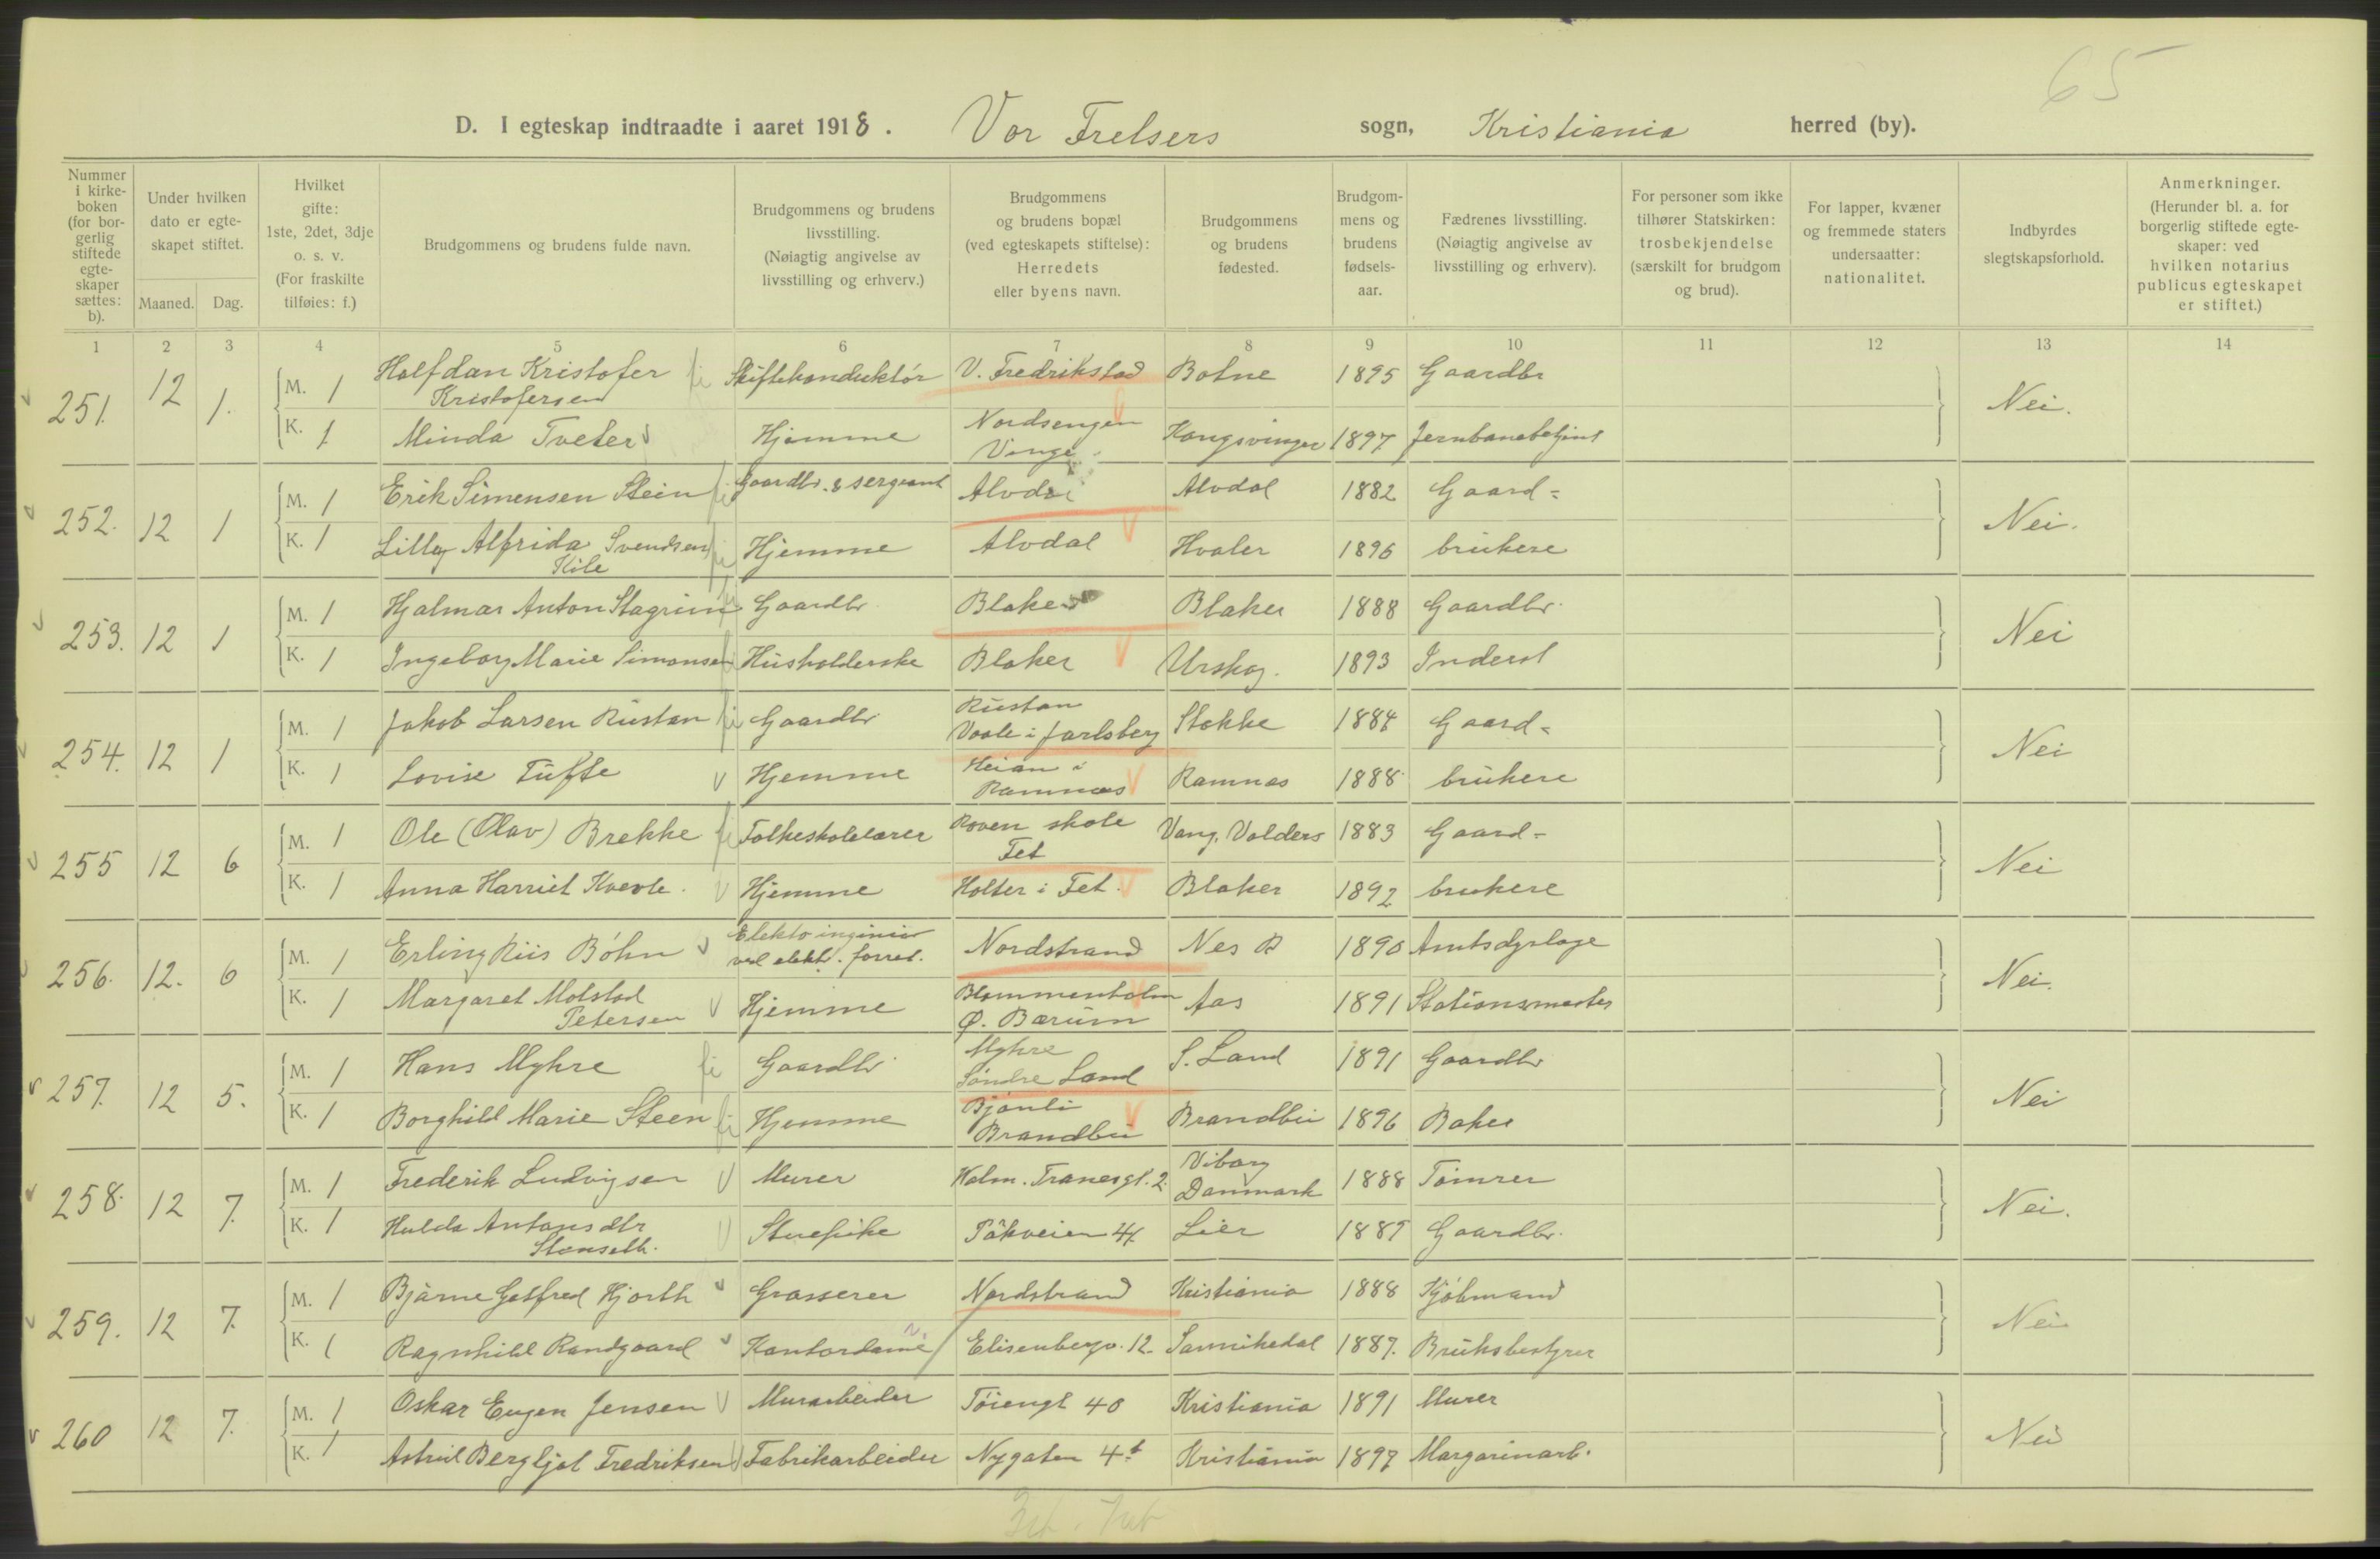 65
D. I egteskap indtraadte i aaret 1918. Vor Frelsers sogn, Kristiania herred (by).
Nummer i kirkeboken (for borgerlig stiftede egteskaper sættes: b).
Under hvilken dato er egteskapet stiftet.
Maaned. Dag.
Hvilket gifte: 1ste, 2det, 3dje o. s. v. (For fraskilte tilføies: f.)
Brudgommens og brudens fulde navn.
Brudgommens og brudens livsstilling. (Nøiagtig angivelse av livsstilling og erhverv.)
Brudgommens og brudens bopæl (ved egteskapets stiftelse): Herredets eller byens navn.
Brudgommens og brudens fødested.
Brudgommens og brudens fødselsaar.
Fædrenes livsstilling. (Nøiagtig angivelse av livsstilling og erhverv).
For personer som ikke tilhører Statskirken: trosbekjendelse (særskilt for brudgom og brud).
For lapper, kvæner og fremmede staters undersaatter: nationalitet.
Indbyrdes slegtskapsforhold.
Anmerkninger. (Herunder bl. a. for borgerlig stiftede egteskaper: ved hvilken notarius publicus egteskapet er stiftet.)
1 2 3 4 5 6 7 8 9 10 11 12 13 14
251. 12 1. M. 1 Halfdan Kristofer Kristofersen Skiftekonduktör V. Fredrikstad Botne 1895 Gaardbr Nei.
K. 1 Minda Tveter Hjemme Nordsengen Vinge Kongsvinger 1897 Jernbanebetjent
252. 12 1 M. 1 Erik Simensen Stein Gaardbr. & sergeant Alvdal Alvdal 1882 Gaard= Nei.
K. 1 Lilly Alfrida Svendsen Kile Hjemme Alvdal Hvaler 1896 brukere
253. 12 1 M. 1 Hjalmar Anton Slagrim Gaardbr. Blaker Blaker 1888 Gaardbr. Nei
K. 1 Ingeborg Marie Simonsen Husholderske Blaker Urskog. 1893 Inderst
254. 12 1 M. 1 Jakob Larsen Rustan Gaardbr Rustan Vaale i Jarlsberg Stokke 1884 Gaard= Nei
K. 1 Lovise Tufte Hjemme Heian i Ramnæs Ramnæs 1888 brukere
255 12 6 M. 1 Ole (Olav) Brekke Folkeskolelærer Roven skole Fet Vang, Valders 1883 Gaard= Nei
K. 1 Anna Harriet Kvevle. Hjemme Holter i Fet. Blaker 1892 brukere
256. 12. 6 M. 1 Erling Riis Böhn Elektroingeniør ved elektr. forret. Nordstrand Nes R 1890 Amtsdyrlæge Nei.
K. 1 Margaret Molstad Petersen Hjemme Blommenholm Ø. Bærum Aas 1891 Stationsmester
257. 12 5. M. 1 Hans Myhre Gaardbr Myhre Søndre Land S. Land 1891 Gaardbr Nei
K. 1 Borghild Marie Steen Hjemme Bjönli Brandbu Brandbu 1896 Baker
258. 12 7. M. 1 Frederik Ludvigsen Murer Holm. Tranesgt. 2. Viborg Danmark 1888 Tömrer Nei.
K. 1 Hulda Antonsdtr Stenseth. Stuepike Påkveien 4. Lier 1889 Gaardbr.
259. 12 7. M. 1 Bjarne Gotfred Hjorth Grosserer Nordstrand Kristiania 1888 Kjöbmand Nei
K. 1 Ragnhild Randgaard Kontordame Elisenbergv. 12. Sannikedal 1887. Bruksbestyrer
260 12 7. M. 1 Oskar Eugen Jensen Murarbeider Töiengt 40 Kristiania 1891 Murer Nei
K. 1 Astrid Bergljot Fredriksen Fabrikarbeider Nygaten 4 b Kristiania 1897 Margarinarb.